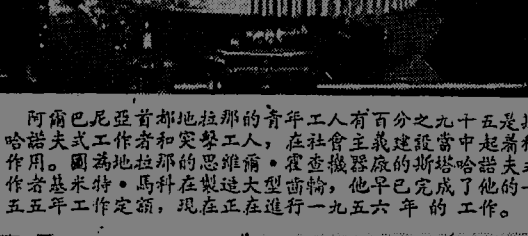 阿爾巴尼亞首都地拉那的青年工人有百分之九十五是
哈諾夫式工作者和突擊工人，在社會主義建設當中起着
作用。圖為地拉那的思維爾·霍查機器廠的斯塔哈諾夫
作者基米特·馬科在製造大型齒輪，他早已完成了他的一
五五年工作定額，現在正在進行一九五六年的工作。